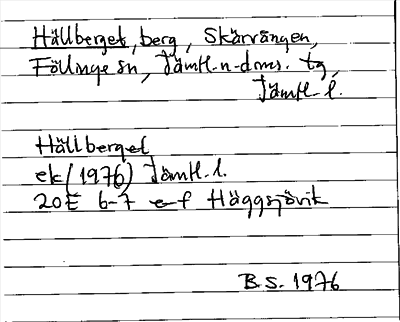 Hällberget, berg, Skärvången,
Föllinge sn, Jämtl. n. dms. tg,
Jämtl. l.
Hällberget
ek (1976) Jämtl. l.
20E 6-7 e-f Häggsjövik
B.S. 1976